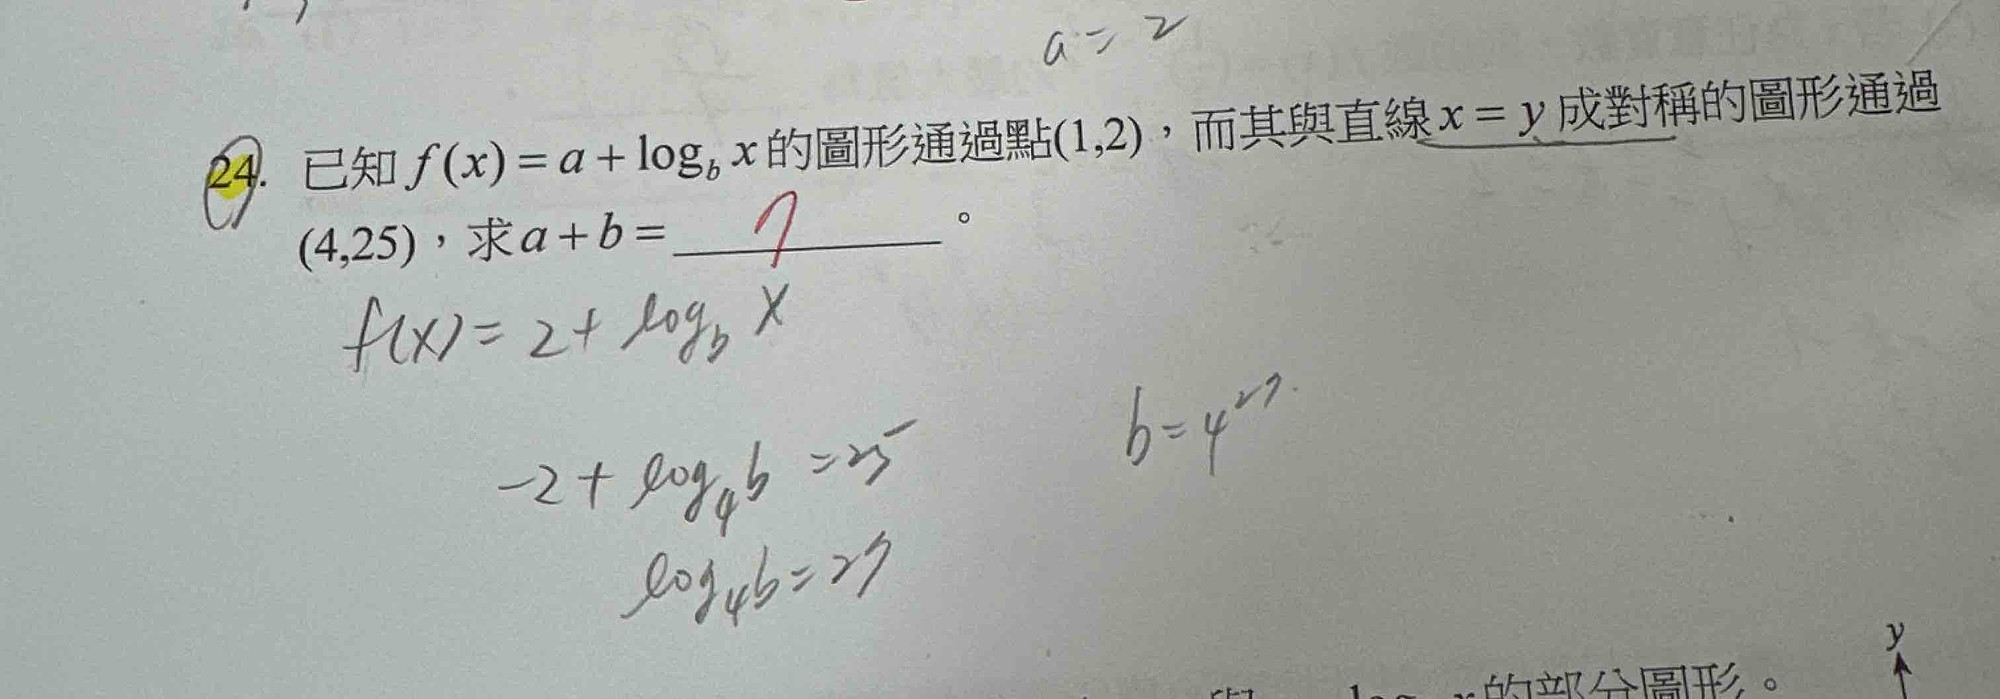 a = 2
24. 已知 f(x) = a + log_b x 的圖形通過點(1,2)，而其與直線 x = y 成對稱的圖形通過
(4,25)，求 a + b = 7 。
f(x) = 2 + log_b x
-2 + log_4 b = 25
b = 4^27
log_4 b = 27
y
的部分圖形。